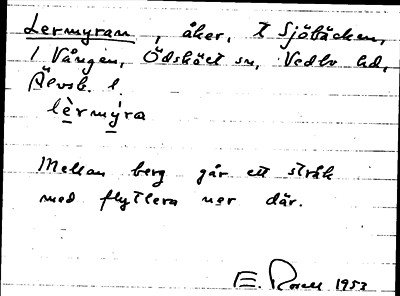 Lermyran, åker, t Sjöbäcken,
1 Vången, Ödskölt sn, Vedbo hd,
Älvsb. l.
lèrmỳra
Mellan berg går ett stråk
med flytlera ner där.
E. Rosell 1953